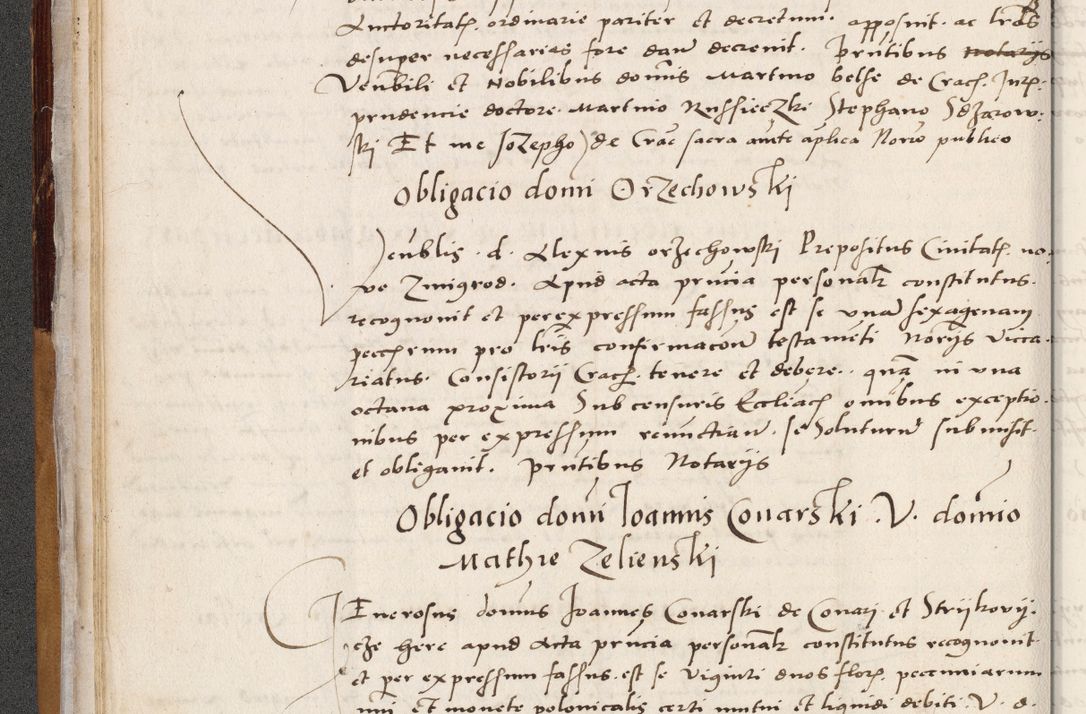 Auctoritatē ordinarie pariter et decretum apposuit ac lrās
desuper necessarias fore dan̄ decrevit. Prn̄tibus Notarijs
Venbili et Nobilibus domīs Martino belse de Crac. Juris
prudencie doctore Martino Russieczki Stephano Sdzarow
ski Et me Jozepho de Crac sacra aucte aplica Noro publico
Obligacio domī Orzechowski
Venblis d. Alexius orzechowski Prepositus Civitatis no
ve Zmigrod. Apud acta prn̄cia personalr constitutus
recognovit et per expressum fassus est se unā sexagenam
pecc rum pro lris confirmacois testamēti Norijs vicca
riatus Consistorij Crac. tenere et debere quā in una
octava proxima Sub censuris Ecclīacs omībus exceptio
nibus per expressum renūctian. se soluturū submisit
et obligavit. Prn̄tibus Notarijs
Obligacio domī Ioannis Conarski V. domīo
Mathie Zelienski
GEnerosus domīus Joannes Conarski de Conari et Strijkovij
cze here apud Acta prn̄cia personalr constitutus recognovit
et per expressum fassus est se viginti duos flor. pecuniarum
nūi et monete polonicalis certi mutui et liquidi debiti V. d.